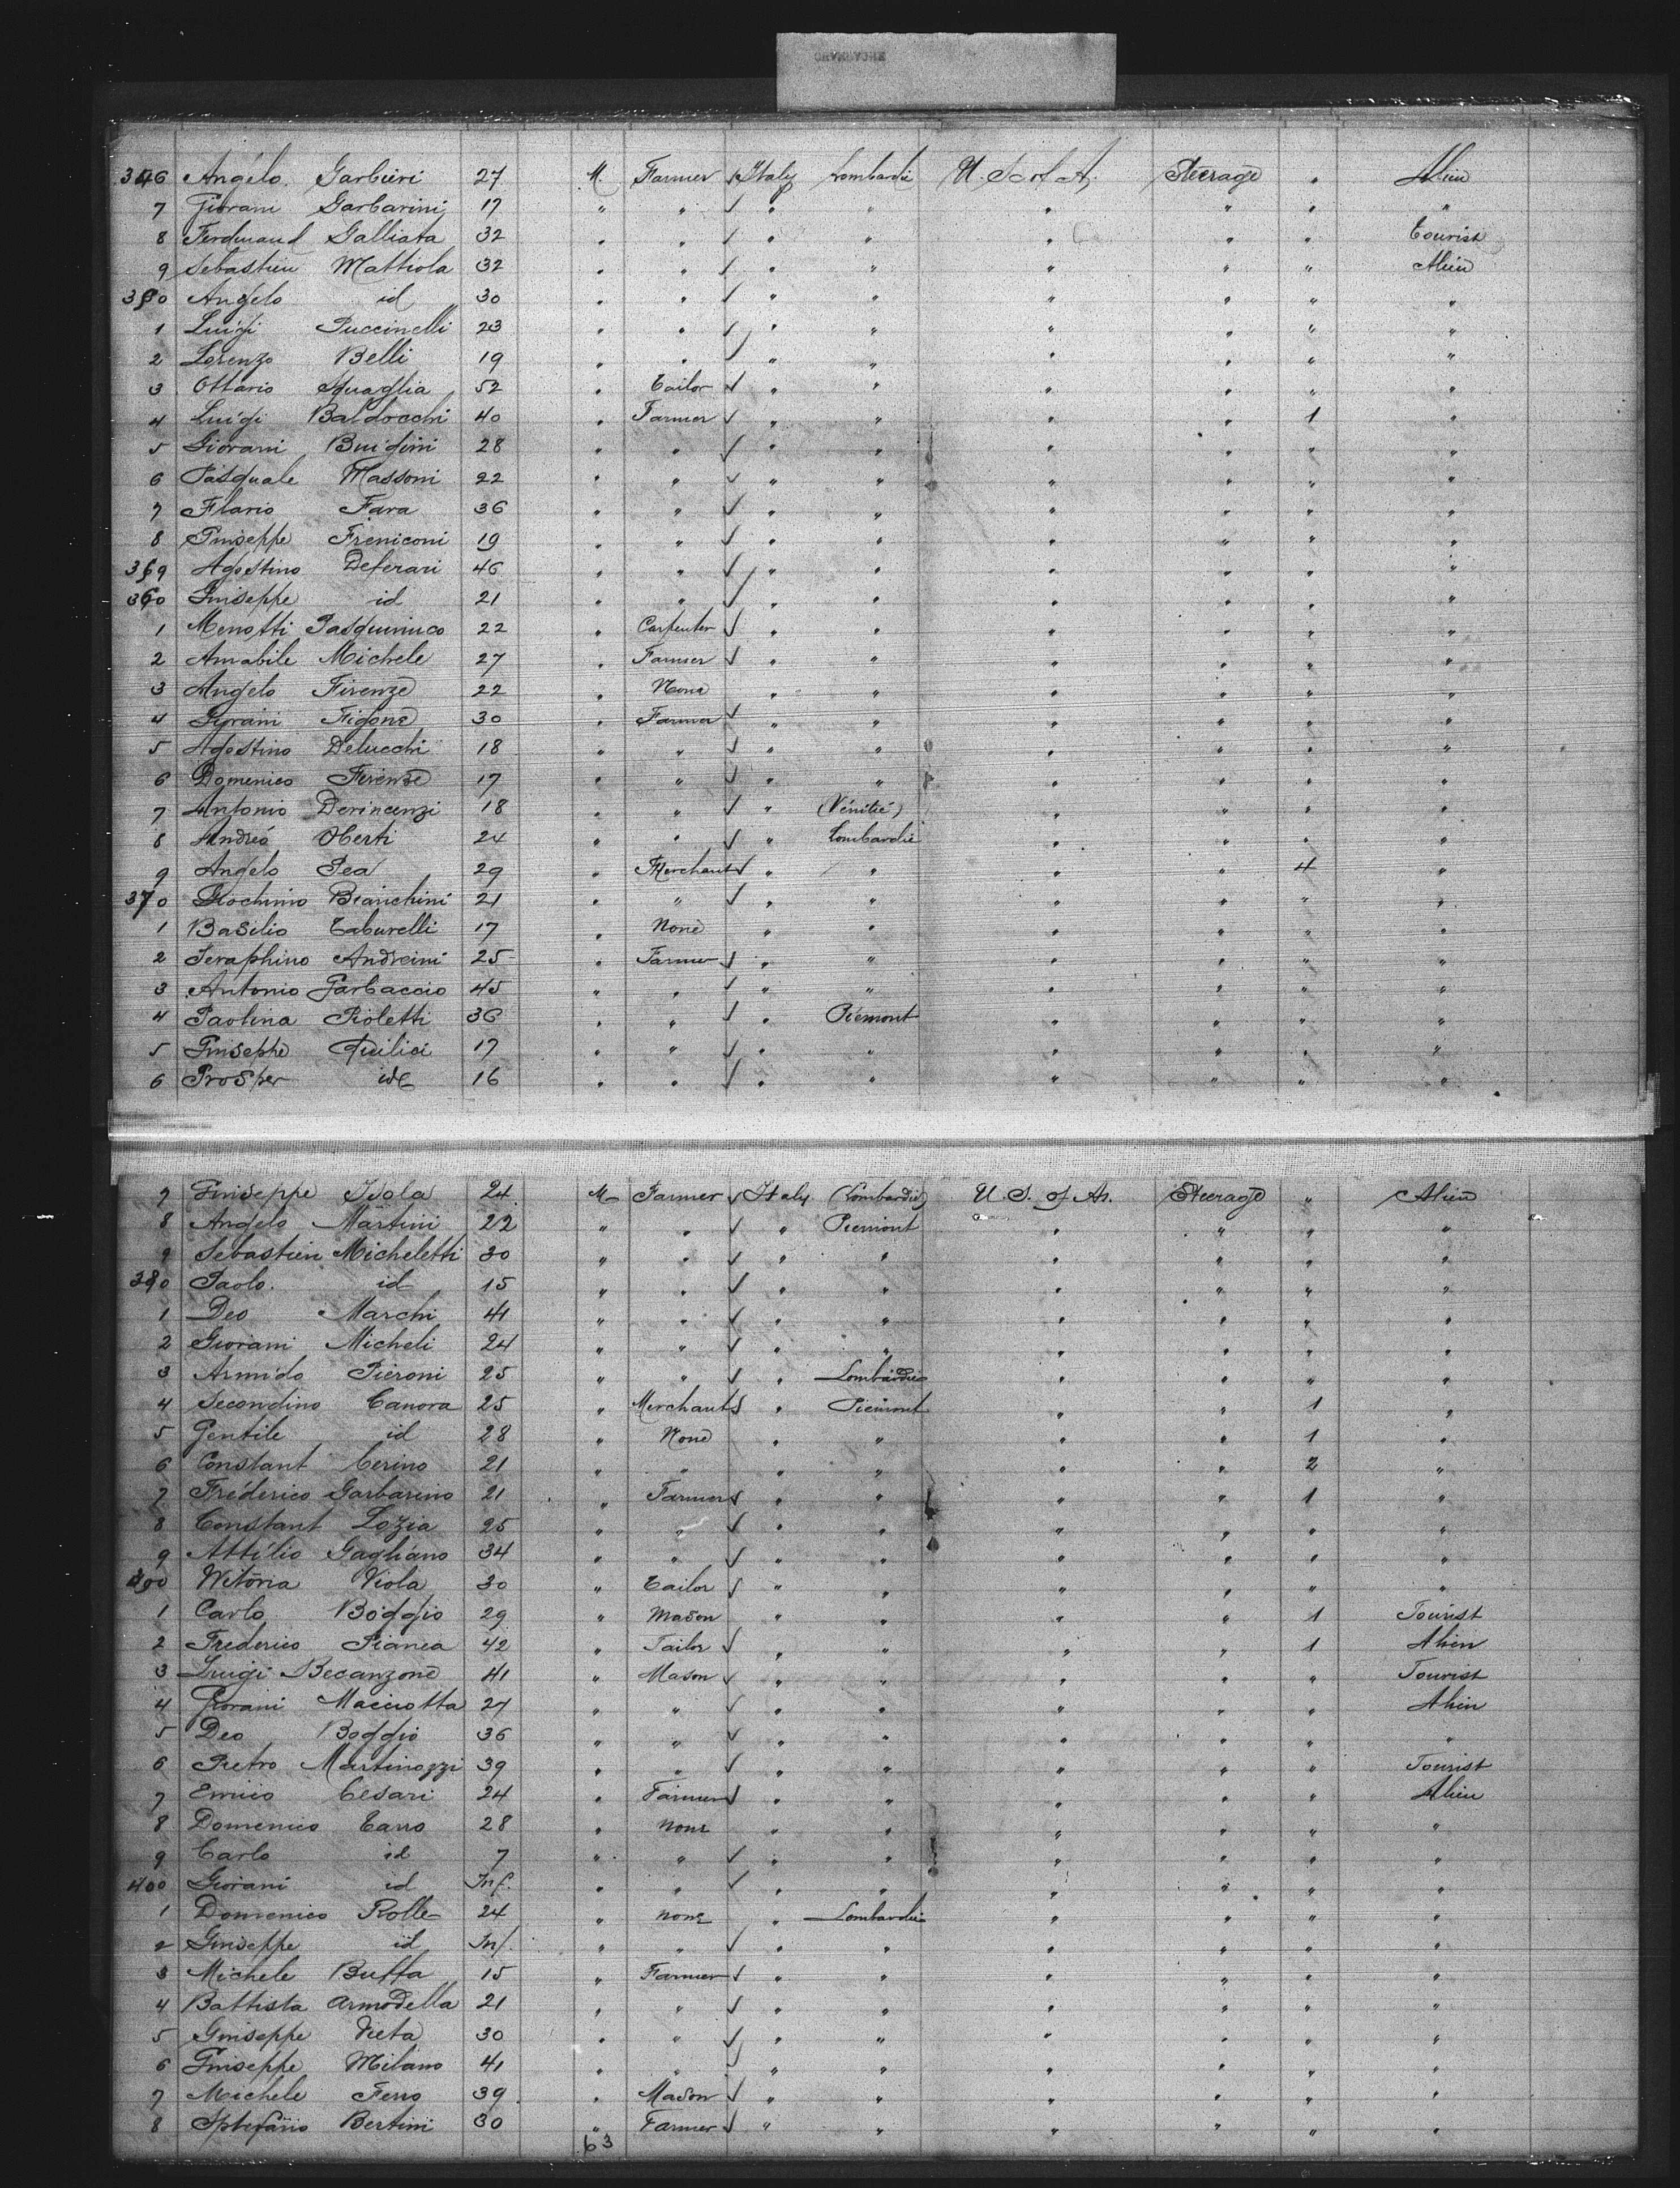 346 Angélo Garbieri 27 M. Farmer Italy Lombardie U. S. of A. Steerage " Alien
7 Giovani Garbarini 17 " " " " " " " "
8 Ferdinand Galliata 32 " " " " " " " tourist
9 Sebastien Mattiola 32 " " " " " " " Alien
350 Angelo id 30 " " " " " " " "
1 Luigi Puccinelli 23 " " " " " " " "
2 Lorenzo Belli 19 " " " " " " " "
3 Ottavio Squaglia 52 " Tailor " " " " " "
4 Luigi Baldocchi 40 " Farmer " " " " 1 "
5 Giovani Buigini 28 " " " " " " " "
6 Pasquale Massoni 22 " " " " " " " "
7 Flavio Fava 36 " " " " " " " "
8 Guiseppe Freniconi 19 " " " " " " " "
359 Agostino Deferari 46 " " " " " " " "
360 Guiseppe id 21 " " " " " " " "
1 Menotti Pasquinuco 22 " Carpenter " " " " " "
2 Amabile Michele 27 " Farmer " " " " " "
3 Angelo Firenze 22 " None " " " " " "
4 Giovani Figone 30 " Farmer " " " " " "
5 Agostino Delucchi 18 " " " " " " " "
6 Domenico Firenze 17 " " " " " " " "
7 Antonio Devincenzi 18 " " " (Vénitié) " " " "
8 Andreó Oberti 24 " " " Lombardie " " " "
9 Angelo Pea 29 " Merchant " " " " 4 "
370 Giochino Bianchini 21 " " " " " " " "
1 Basilio Taburelli 17 " None " " " " " "
2 Seraphino Andreini 25 " Farmer " " " " " "
3 Antonio Garbaccio 45 " " " " " " " "
4 Paolina Pioletti 36 " " " Piemont " " " "
5 Guiseppe Quilici 17 " " " " " " " "
6 Prosper id 16 " " " " " " " "
7 Guiseppe Isola 24 M Farmer Italy (Lombardie) U. S. of A. Steerage " Alien
8 Angelo Martini 22 " " " Piemont " " " "
9 Sebastien Micheletti 30 " " " " " " " "
380 Paolo id 15 " " " " " " " "
1 Deo Marchi 41 " " " " " " " "
2 Giovani Micheli 24 " " " " " " " "
3 Armido Pieroni 25 " " " Lombardie " " " "
4 Secondino Canova 25 " Merchant " Piemont " " 1 "
5 Gentile id 28 " None " " " " 1 "
6 Constant Cerino 21 " " " " " " 2 "
7 Fréderico Garbarino 21 " Farmer " " " " 1 "
8 Constant Lozia 25 " " " " " " " "
9 Attilio Gagliano 34 " " " " " " " "
390 Witoria Viola 30 " Tailor " " " " " "
1 Carlo Boggio 29 " Mason " " " " 1 Tourist
2 Frederico Pianea 42 " Tailor " " " " 1 Alien
3 Luigi Becanzone 41 " Mason " " " " " Tourist
4 Giovani Macciotta 27 " " " " " " " Alien
5 Deo Boggio 36 " " " " " " " "
6 Pietro Martinozzi 39 " " " " " " " Tourist
7 Ennio Cesari 24 " Farmer " " " " " Alien
8 Domenico Tarro 28 " None " " " " " "
9 Carlo id 7 " " " " " " " "
400 Giovani id Inf. " " " " " " " "
1 Domenico Rolle 24 " none " Lombardie " " " "
2 Guiseppe id Inf. " " " " " " " "
3 Michele Buffa 15 " Farmer " " " " " "
4 Battista Armodella 21 " " " " " " " "
5 Guiseppe Vieta 30 " " " " " " " "
6 Guiseppe Milano 41 " " " " " " " "
7 Michele Ferro 39 " Mason " " " " " "
8 Bertini 30 " Farmer " " " " " "
63